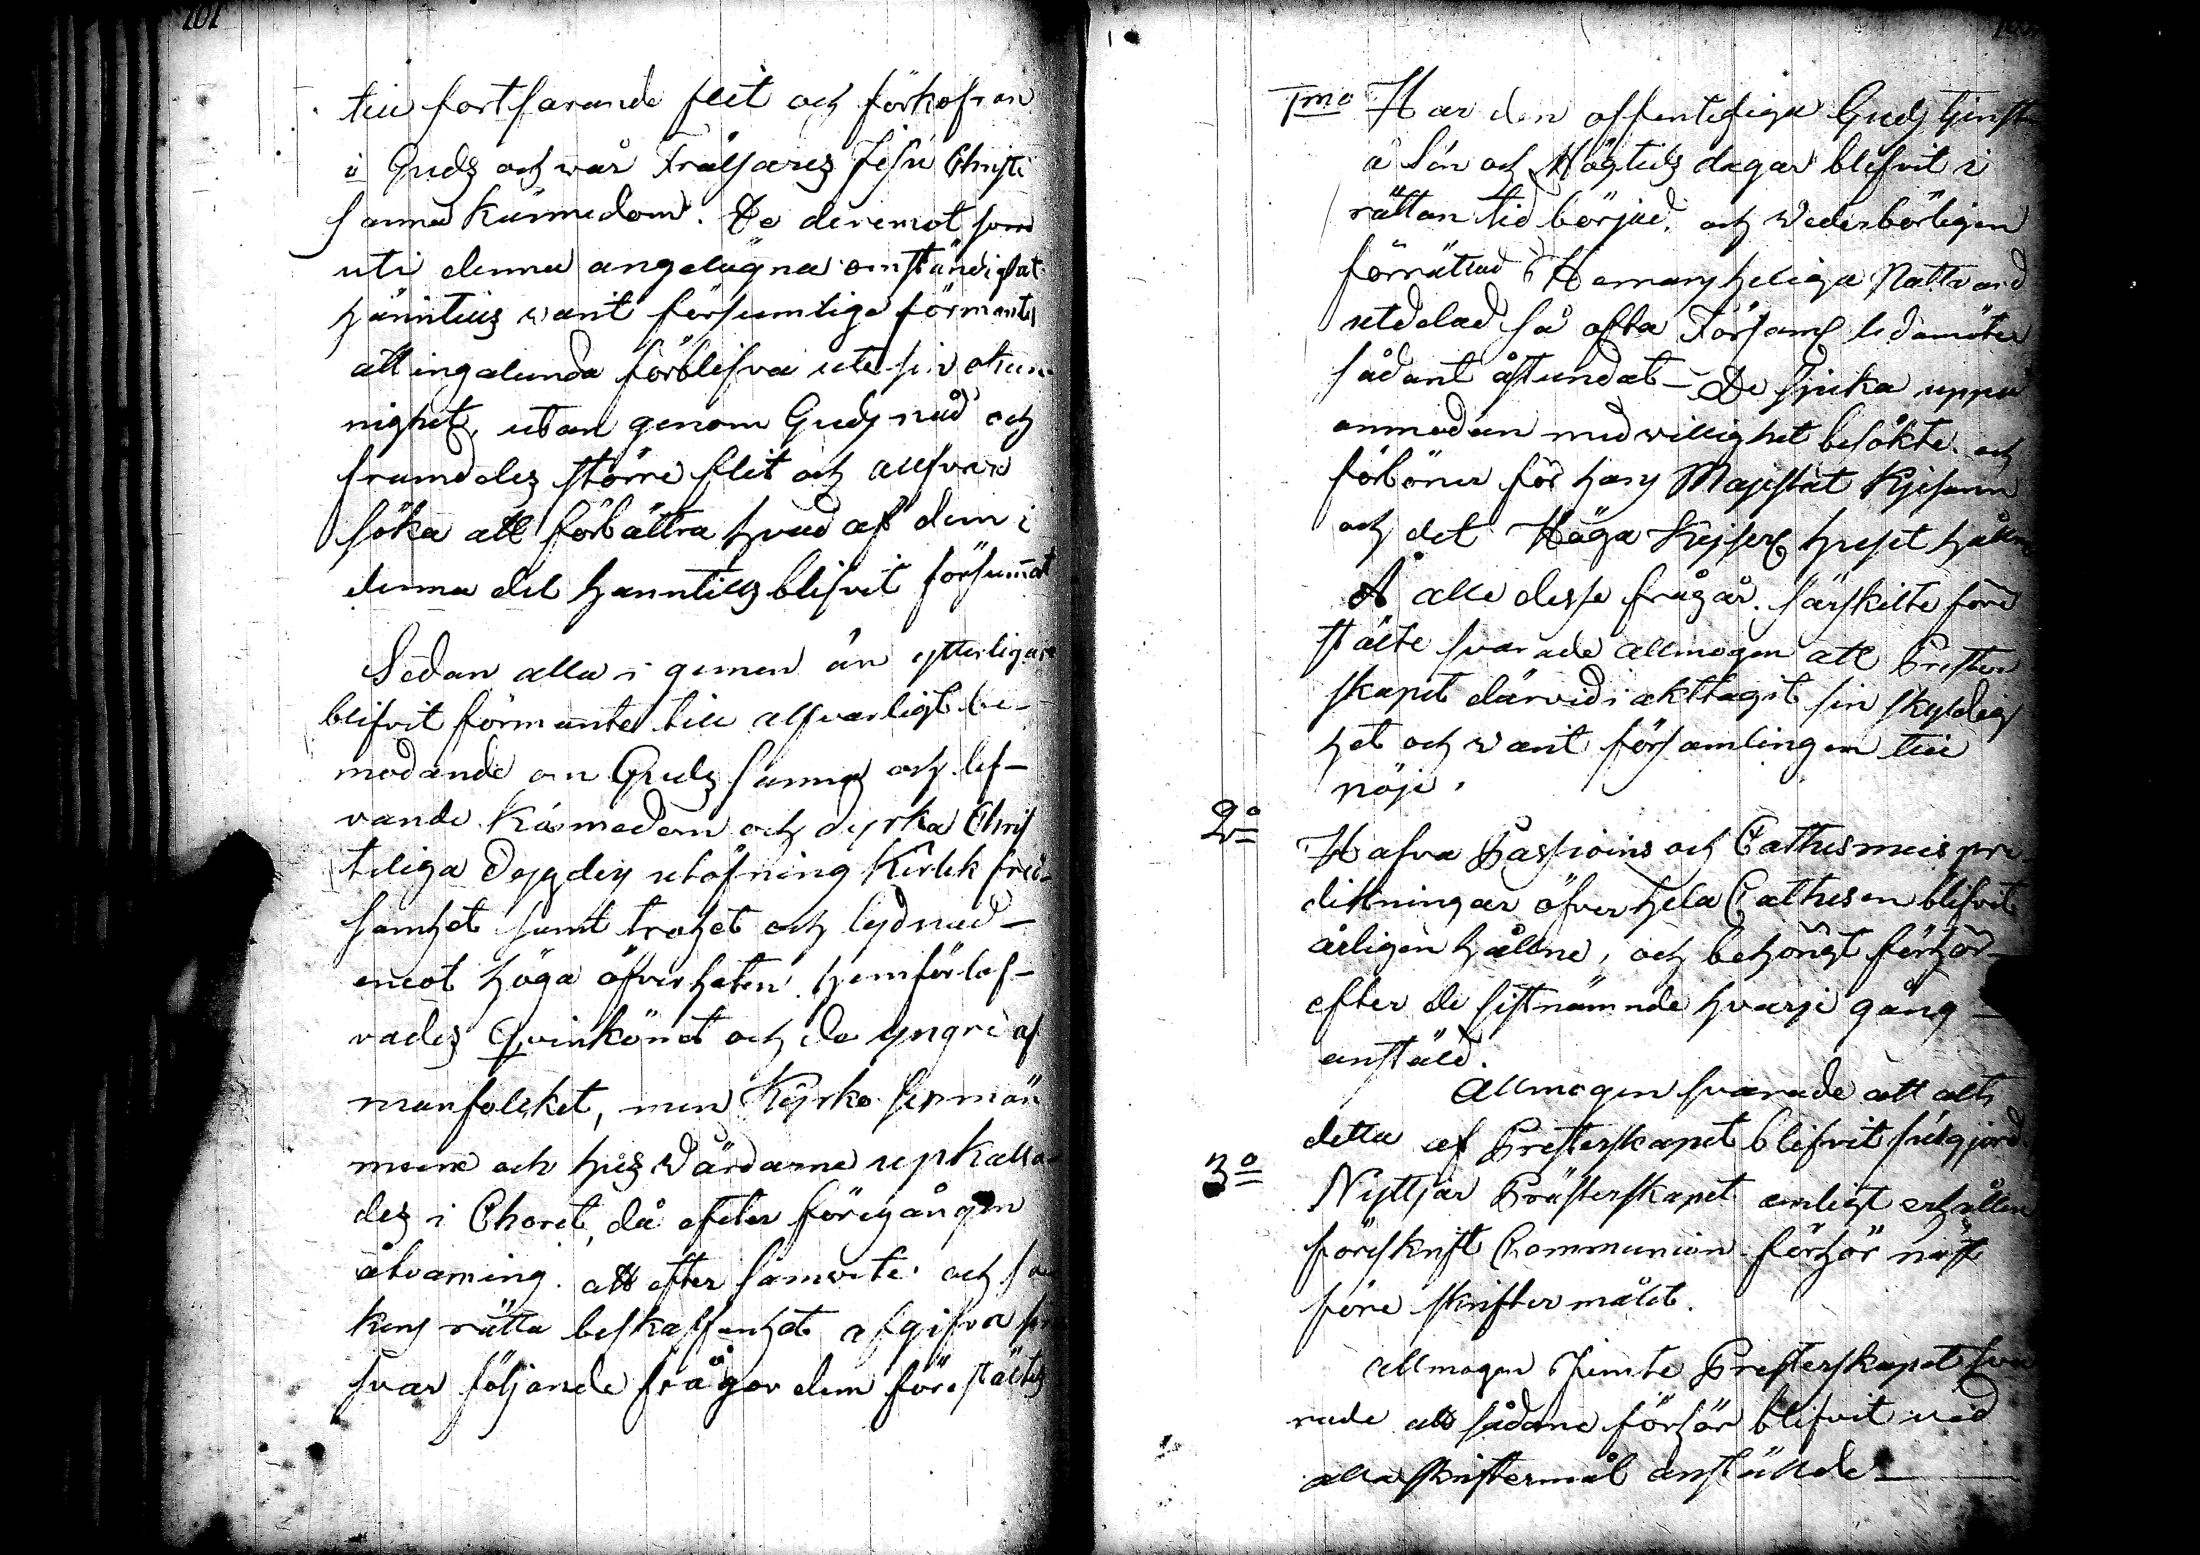 101
till fortfarande flit och förkofran
i Guds och vår Frälsares Jesu Christi
sanna kunnedom. De deremot som
uti denna angelägna omständighet
häruntills varit försumlige förmantes
att ingalunda förblifva uti sin okun-
nighet, utan genom Guds nåd och
framdeles större flit och allfvar
söka att förbättra hvad af dem i
denna del häruntills blifvit försummat
Sedan alla i gemen än ytterligare
blifvit förmante till allfvarligt be-
modande om Guds sanna och lef-
vande kännedom och dyrka Chris
teliga dygders utöfning Kerlek frid-
samhet samt trohet och lydnad-
emot höga öfverheten hemförlof-
vades Qvinkönet och de yngre af
manfolcket, men Kyrko sexmän
nerne och hus Värdarne upkalla-
des i Choret, då efter föregången
åtvarning att efter samvete och sa
kens rätta beskaffenhet afgifva sin
svar följande frågor dem föreställtes
1mo Har den offenteliga Guds tjensten
å Sön och Högtids dagar blifvit i
rättan tid börjad, och Vederbörligen
förrättad Herrans heliga Nattvard
utdelad så ofta Församl ledamöter
sådant åstundat - De sjuka uppå
anmodan med willighet besökte och
förböner för Hans Majestät Kejsaren
och det Höga Kejserl huset hållne
Å alla desse frågår särskilte före
stälte svarade allmogen att Prester
skapet därvid iakttagit sin skyldig
het och varit församlingen till
nöje.
2o Hafva Passions och Cathesmis pre
dikningar öfver hela Cathesen blifvit
årligen hållne, och behörigt förhör
efter de sistnämnde hvarje gång -
anstäld.
Allmogen svarade att alt
detta af Presterskapet blifvit fulgjord
3o Nyttjar Prästerskapet enligt erhållen
föreskrift Communion förhör näst
före skriftermålet.
Allmogen Jemte Presterskapet sva
rade att sådane förhör blifvit wid
alla skriftermål anstälde-